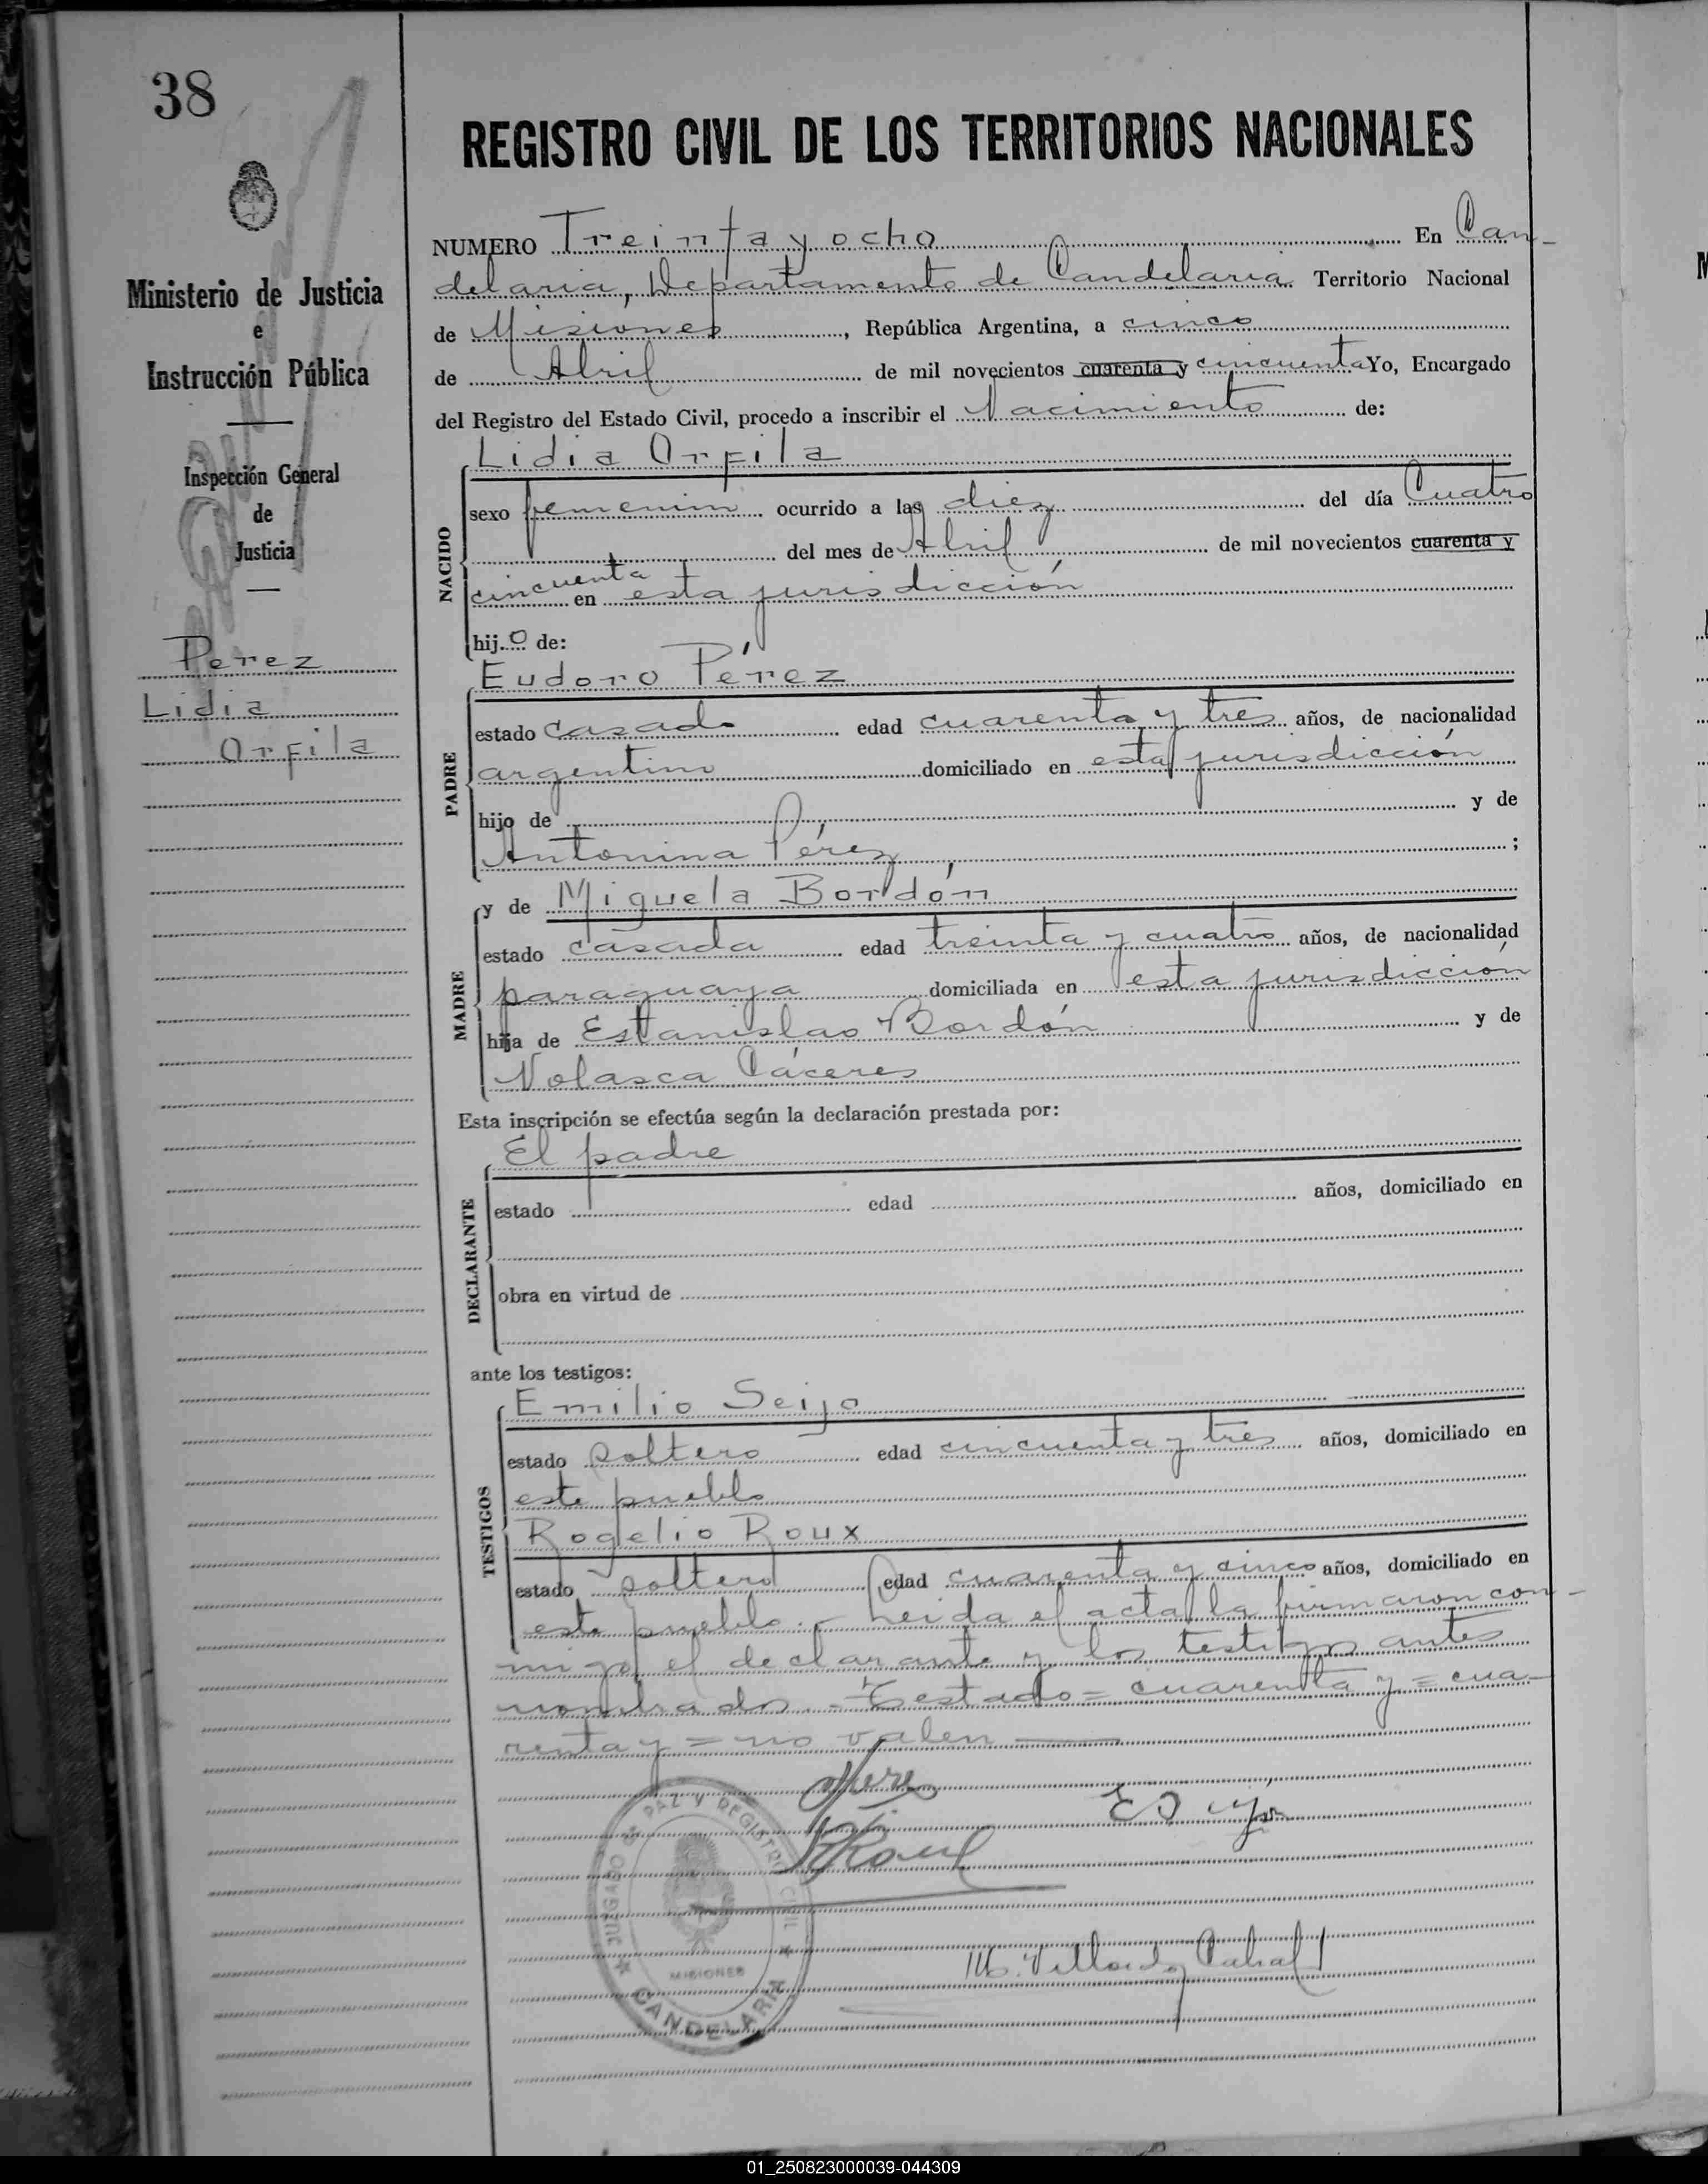 38
REGISTRO CIVIL DE LOS TERRITORIOS NACIONALES
Ministerio de Justicia
e
Instrucción Pública
Inspección General
de
Justicia
Perez
Lidia
Orfila
NUMERO Treinta y ocho En Can-
delaria, Departamento de Candelaria Territorio Nacional
de Misiones, República Argentina, a cinco
de Abril de mil novecientos cuarenta y cincuenta Yo, Encargado
del Registro del Estado Civil, procedo a inscribir el Nacimiento de:
NACIDO
Lidia Orfila
sexo femenino ocurrido a las diez del día Cuatro
del mes de Abril de mil novecientos cuarenta y
cincuenta en esta jurisdicción
hij o de:
PADRE
Eudoro Pérez
estado casado edad cuarenta y tres años, de nacionalidad
argentino domiciliado en esta jurisdicción
hijo de y de
Antonina Pérez ;
MADRE
y de Miguela Bordón
estado casada edad treinta y cuatro años, de nacionalidad
paraguaya domiciliada en esta jurisdicción
hija de Estanislao Bordón y de
Nolasca Cáceres
Esta inscripción se efectúa según la declaración prestada por:
DECLARANTE
El padre
estado edad años, domiciliado en
obra en virtud de
ante los testigos:
TESTIGOS
Emilio Seijo
estado soltero edad cincuenta y tres años, domiciliado en
este pueblo
Rogelio Roux
estado soltero edad cuarenta y cinco años, domiciliado en
este pueblo.- Leida el acta la firmaron con-
migo el declarante y los testigos antes
nombrados.- Testado = cuarenta y = cua-
renta y = no valen
JUZGADO DE PAZ Y REGISTRO CIVIL
MISIONES
CANDELARIA
01_250823000039-044309